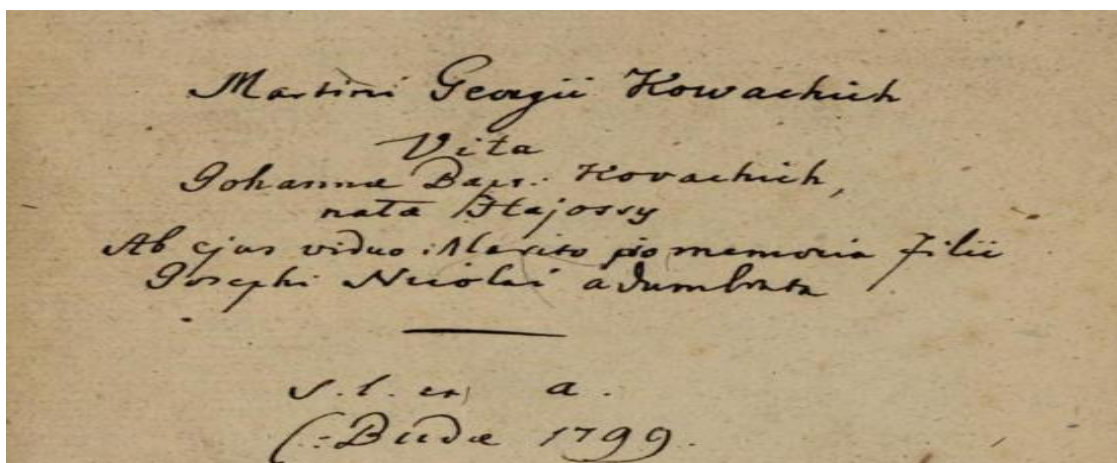 Martini Georgii Kowachich
Vita
Johannæ Bapt. Kovachich,
natæ Hajossy
Ab ejus viduo Marito pio memoria filii
Josephi Nicolai adumbrata
s. l. et a.
(: Budæ 1799.